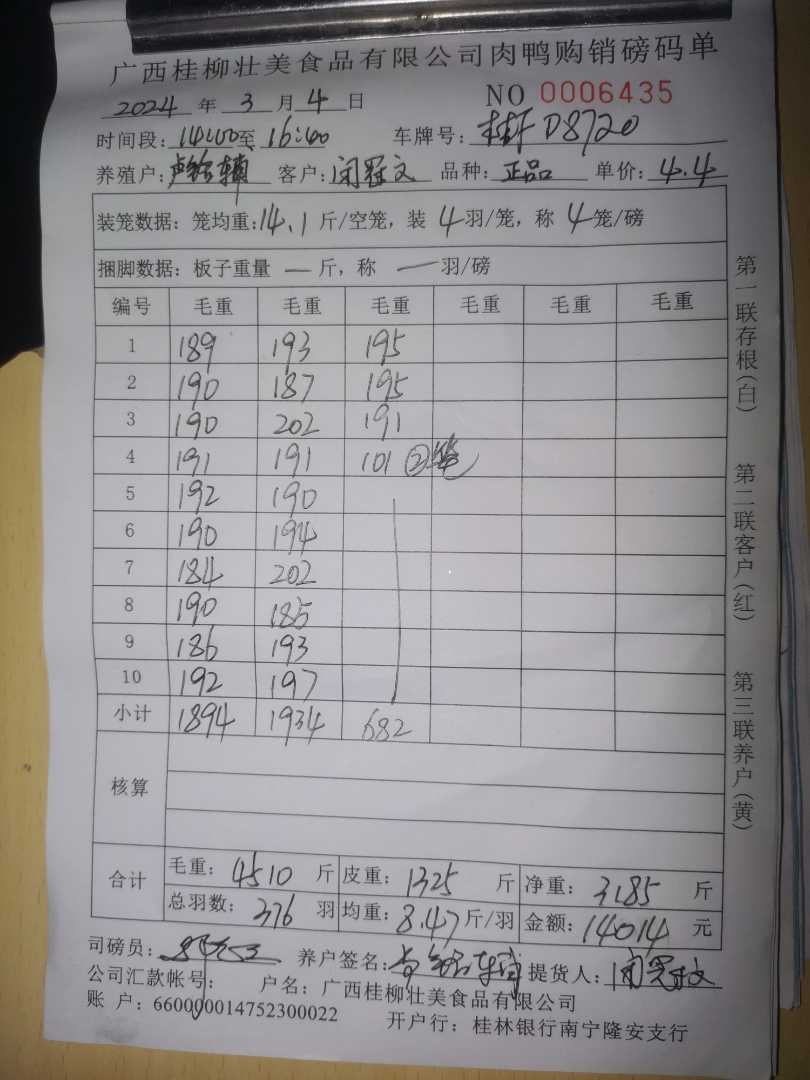 广西桂柳壮美食品有限公司肉鸭购销磅码单
2024 年 3 月 4 日 NO 0006435
时间段: 14:00至 16:00 车牌号: D8720
养殖户: 客户: 闭冠文 品种: 正品 单价: 4.4
装笼数据: 笼均重: 14.1 斤/空笼, 装 4 羽/笼, 称 4 笼/磅
捆脚数据: 板子重量 一 斤, 称 一 羽/磅
编号 毛重 毛重 毛重 毛重 毛重 毛重
1 189 193 195
2 190 187 195
3 190 202 191
4 191 191 101 ②笼
5 192 190
6 190 194
7 184 202
8 190 185
9 186 193
10 192 197
小计 1894 1934 682
核算
合计 毛重: 4510 斤 皮重: 1325 斤 净重: 3185 斤
总羽数: 376 羽 均重: 8.47 斤/羽 金额: 14014 元
司磅员: 养户签名: 提货人: 闭冠文
公司汇款帐号: 户名: 广西桂柳壮美食品有限公司
账 户: 660000014752300022 开户行: 桂林银行南宁隆安支行
第一联存根(白)
第二联客户(红)
第三联养户(黄)